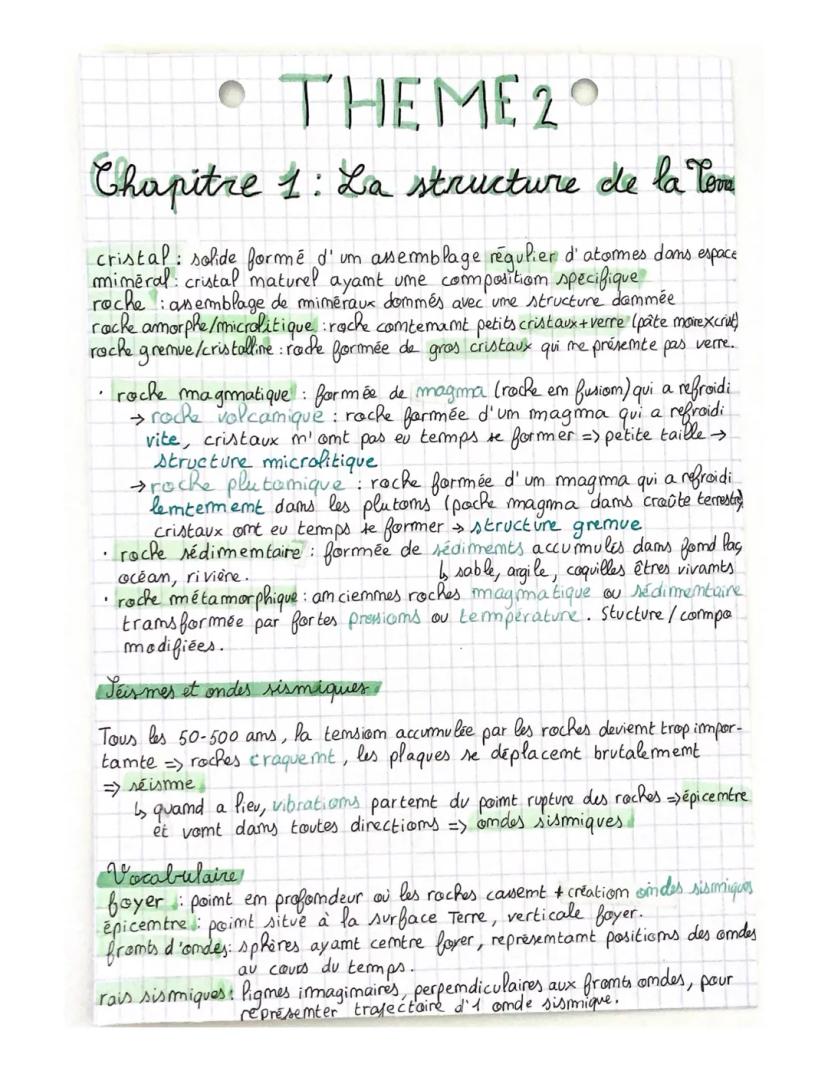 THEME 2
Chapitre 1 : La structure de la Terre
cristal : solide formé d'un assemblage régulier d'atomes dans espace
minéral : cristal naturel ayant une composition spécifique
roche : assemblage de minéraux donnés avec une structure donnée
roche amorphe/microlitique : roche contenant petits cristaux+verre (pâte noire x crist)
roche grenue/cristalline : roche formée de gros cristaux qui ne présente pas verre.
· roche magmatique : formée de magma (roche en fusion) qui a refroidi
→ roche volcanique : roche formée d'un magma qui a refroidi
vite, cristaux n'ont pas eu temps se former => petite taille →
structure microlitique
→ roche plutonique : roche formée d'un magma qui a refroidi
lentement dans les plutons (poche magma dans croûte terrestre)
cristaux ont eu temps se former → structure grenue
· roche sédimentaire : formée de sédiments accumulés dans fond lac,
océan, rivière. ↳ sable, argile, coquilles êtres vivants
· roche métamorphique : anciennes roches magmatique ou sédimentaire
transformée par fortes pressions ou température. Stucture / compo
modifiées.
Séismes et ondes sismiques
Tous les 50-500 ans, la tension accumulée par les roches devient trop impor-
tante => roches craquent, les plaques se déplacent brutalement
=> séisme
↳ quand a lieu, vibrations partent du point rupture des roches => épicentre
et vont dans toutes directions => ondes sismiques
Vocabulaire
foyer : point en profondeur où les roches cassent + création ondes sismiques
épicentre : point situé à la surface Terre, verticale foyer.
fronts d'ondes : sphères ayant centre foyer, représentant positions des ondes
au cours du temps.
rais sismiques : lignes imaginaires, perpendiculaires aux fronts ondes, pour
représenter trajectoire d'1 onde sismique.